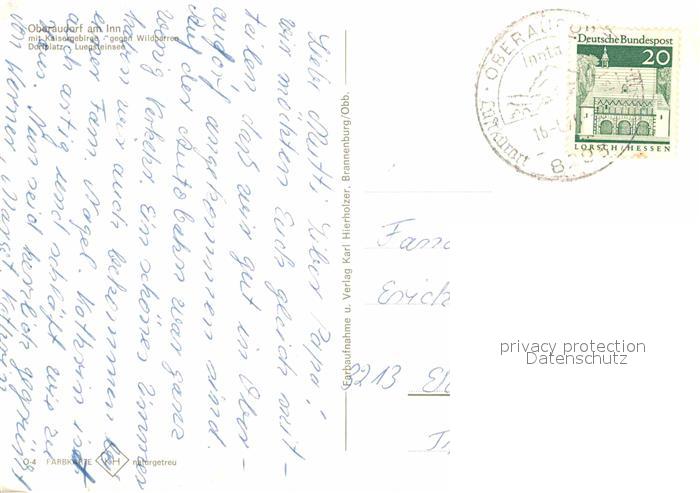 Oberaudorf am Inn
mit Kaisergebirge - gegen Wildbarren
Dorfplatz - Luegsteinsee
Liebe Mutti, lieber Papa!
wir möchten Euch gleich mit-
teilen daß wir gut in Ober-
audorf angekommen sind.
Auf der Autobahn war ganz
wenig Verkehr. Ein schönes Zimmer
haben wir auch bekommen bei
einer Fam. Nagel. Kathrin ist
artig und schläft wie zu
Haus. Nun seid herzlich gegrüßt
von Werner, Margot, Kathrin
0-4 FARBKARTE KH naturgetreu
Farbaufnahme u. Verlag Karl Hierholzer, Brannenburg/Obb.
OBERAUDORF
Luftkurort
16.
Deutsche Bundespost
20
LORSCH/HESSEN
Fam
Erich
2213
privacy protection
Datenschutz